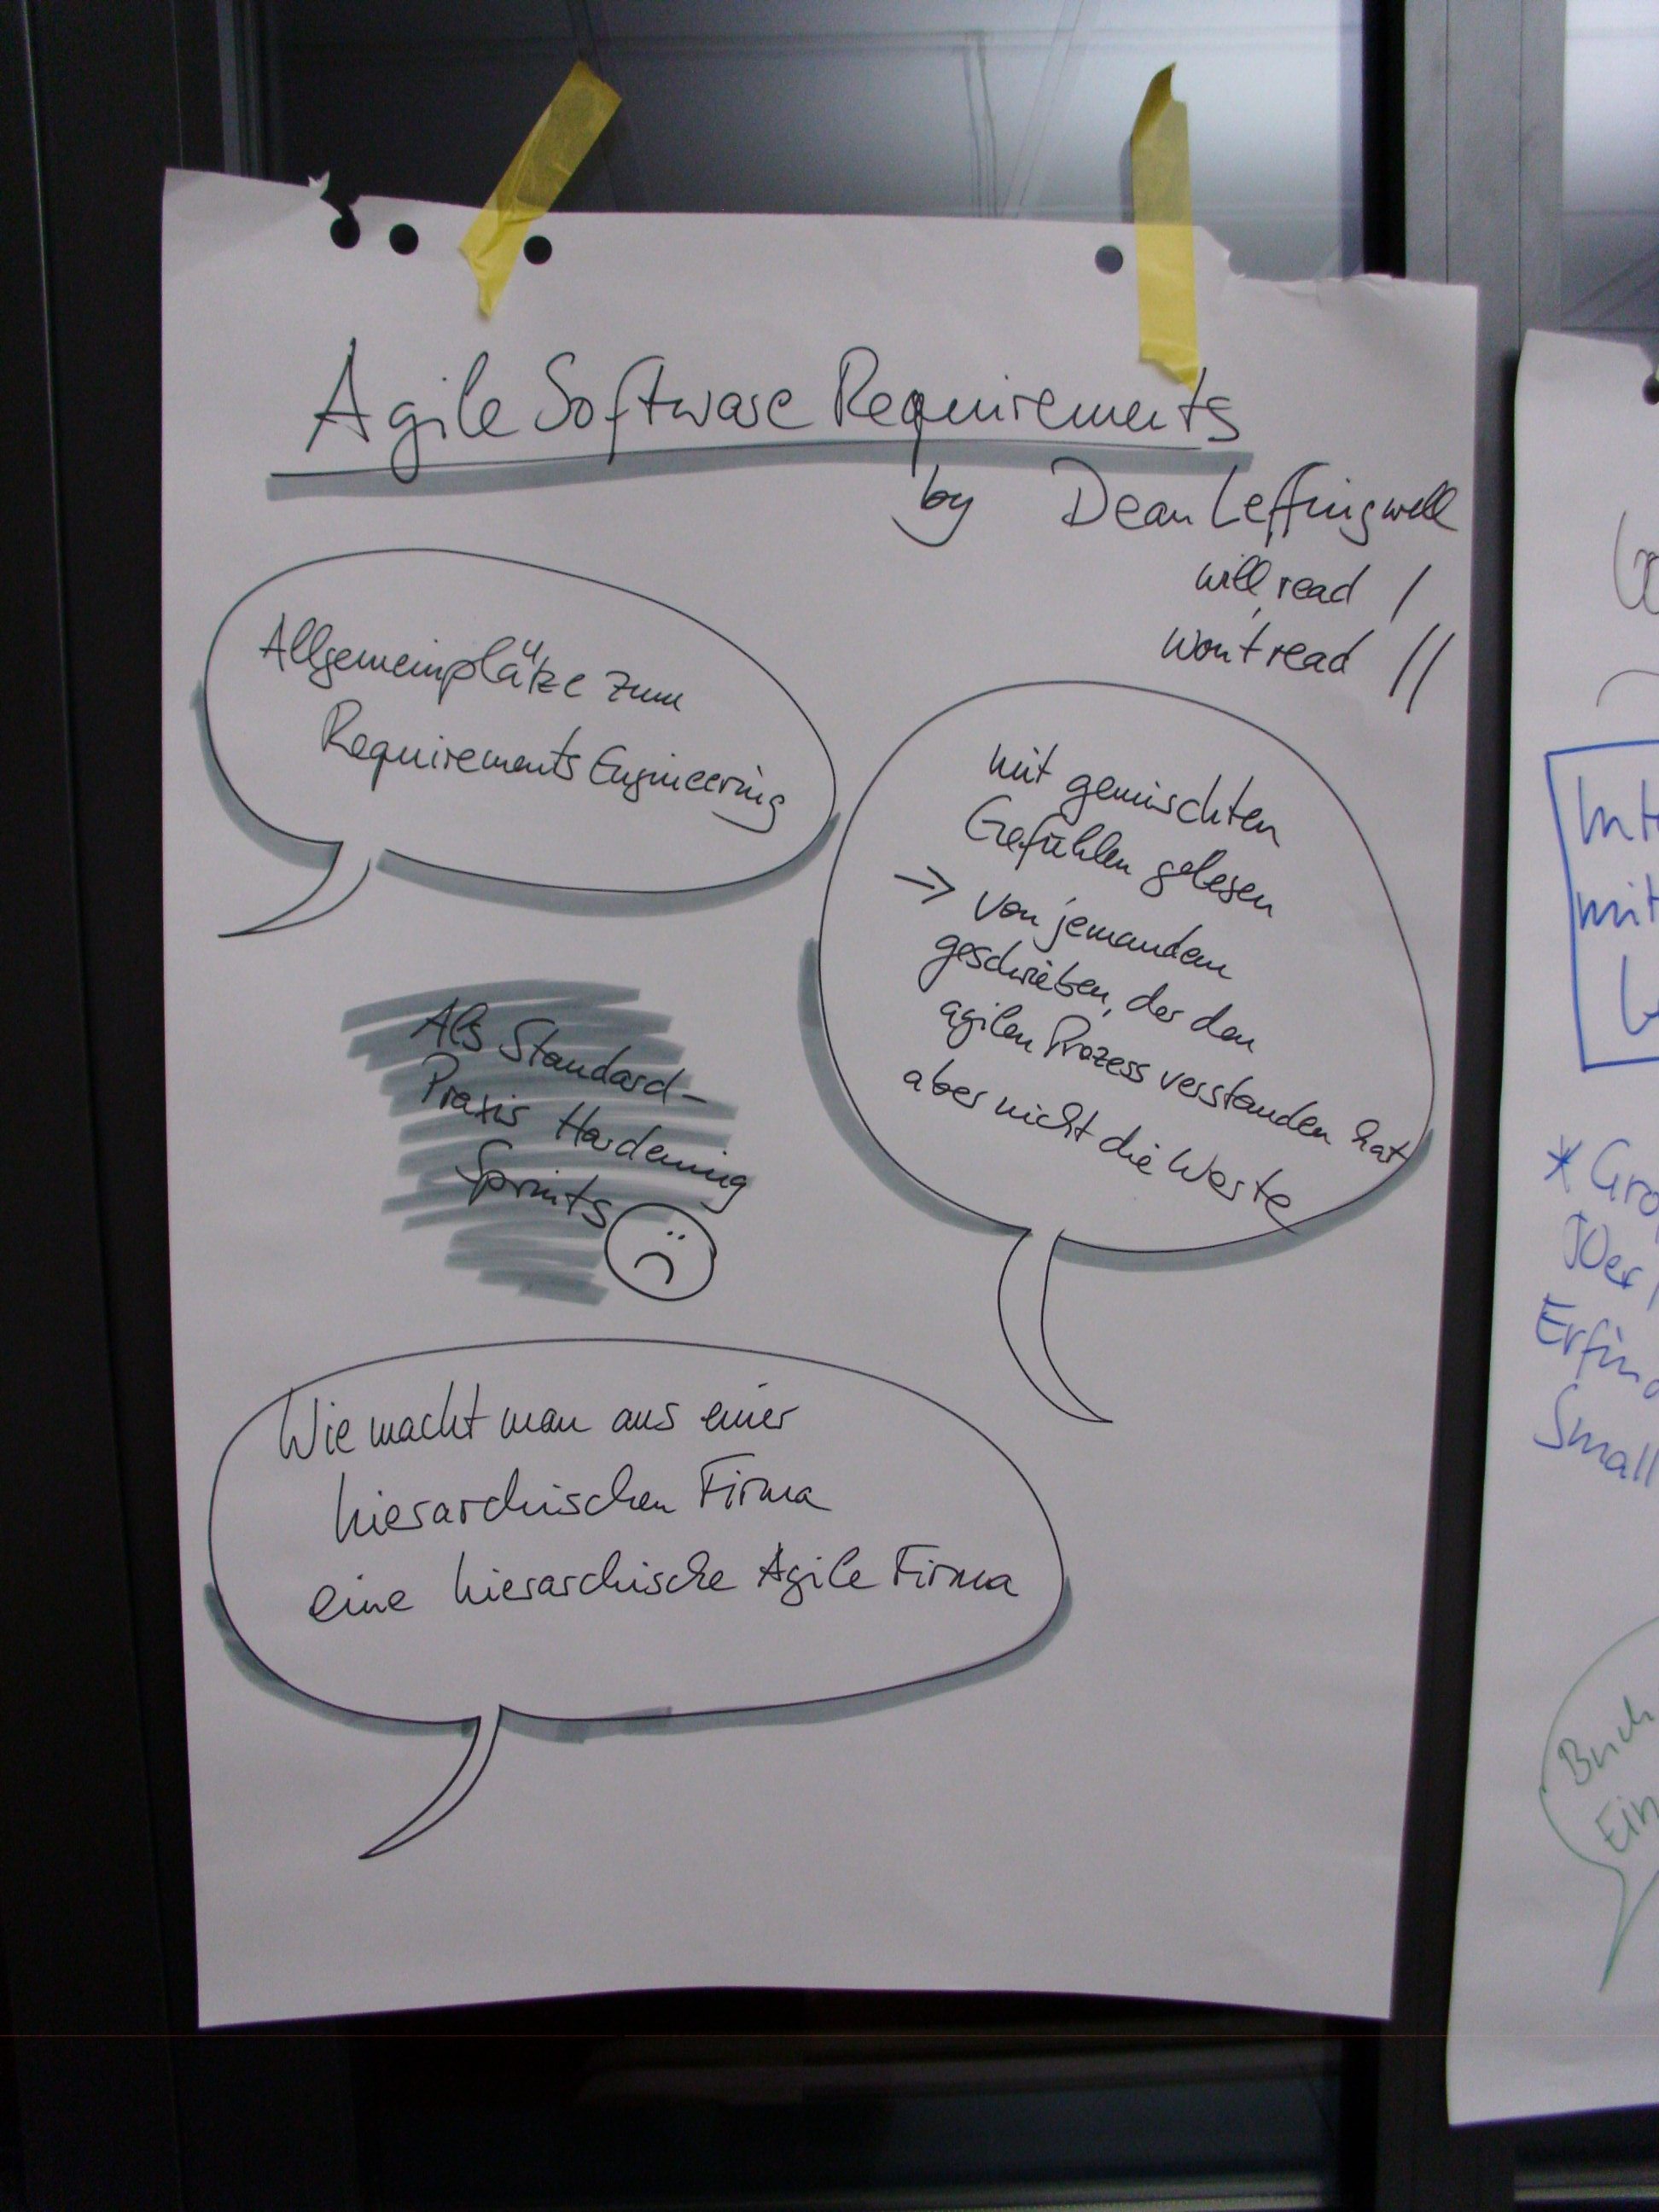 Agile Software Requirements
by Dean Leffingwell
will read /
won't read //
Allgemeinplätze zum
Requirements Engineering
mit gemischten
Gefühlen gelesen
→ von jemandem
geschrieben, der den
agilen Prozess verstanden hat
aber nicht die Werte
Als Standard-
Praxis Hardening
Sprints
Wie macht man aus einer
hierarchischen Firma
eine hierarchische Agile Firma
mit
* Gro
Erfind
Small
Buch
Ein